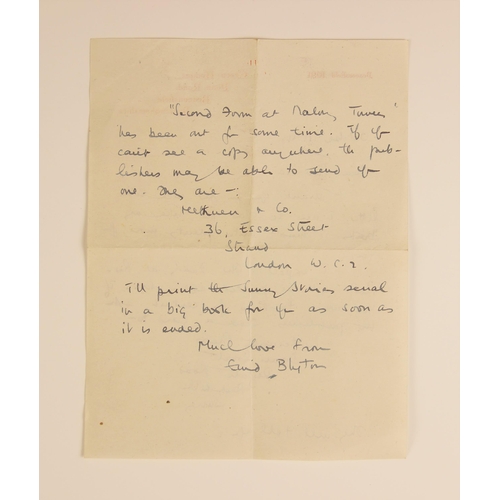 "Second Form at Malory Towers"
has been out for some time. If you
can't see a copy anywhere, the pub-
lishers may be able to send you
one. They are –:
Methuen & Co.
36, Essex Street
Strand
London W.C.2.
I'll print the Sunny Stories serial
in a big book for you as soon as
it is ended.
Much love from
Enid Blyton